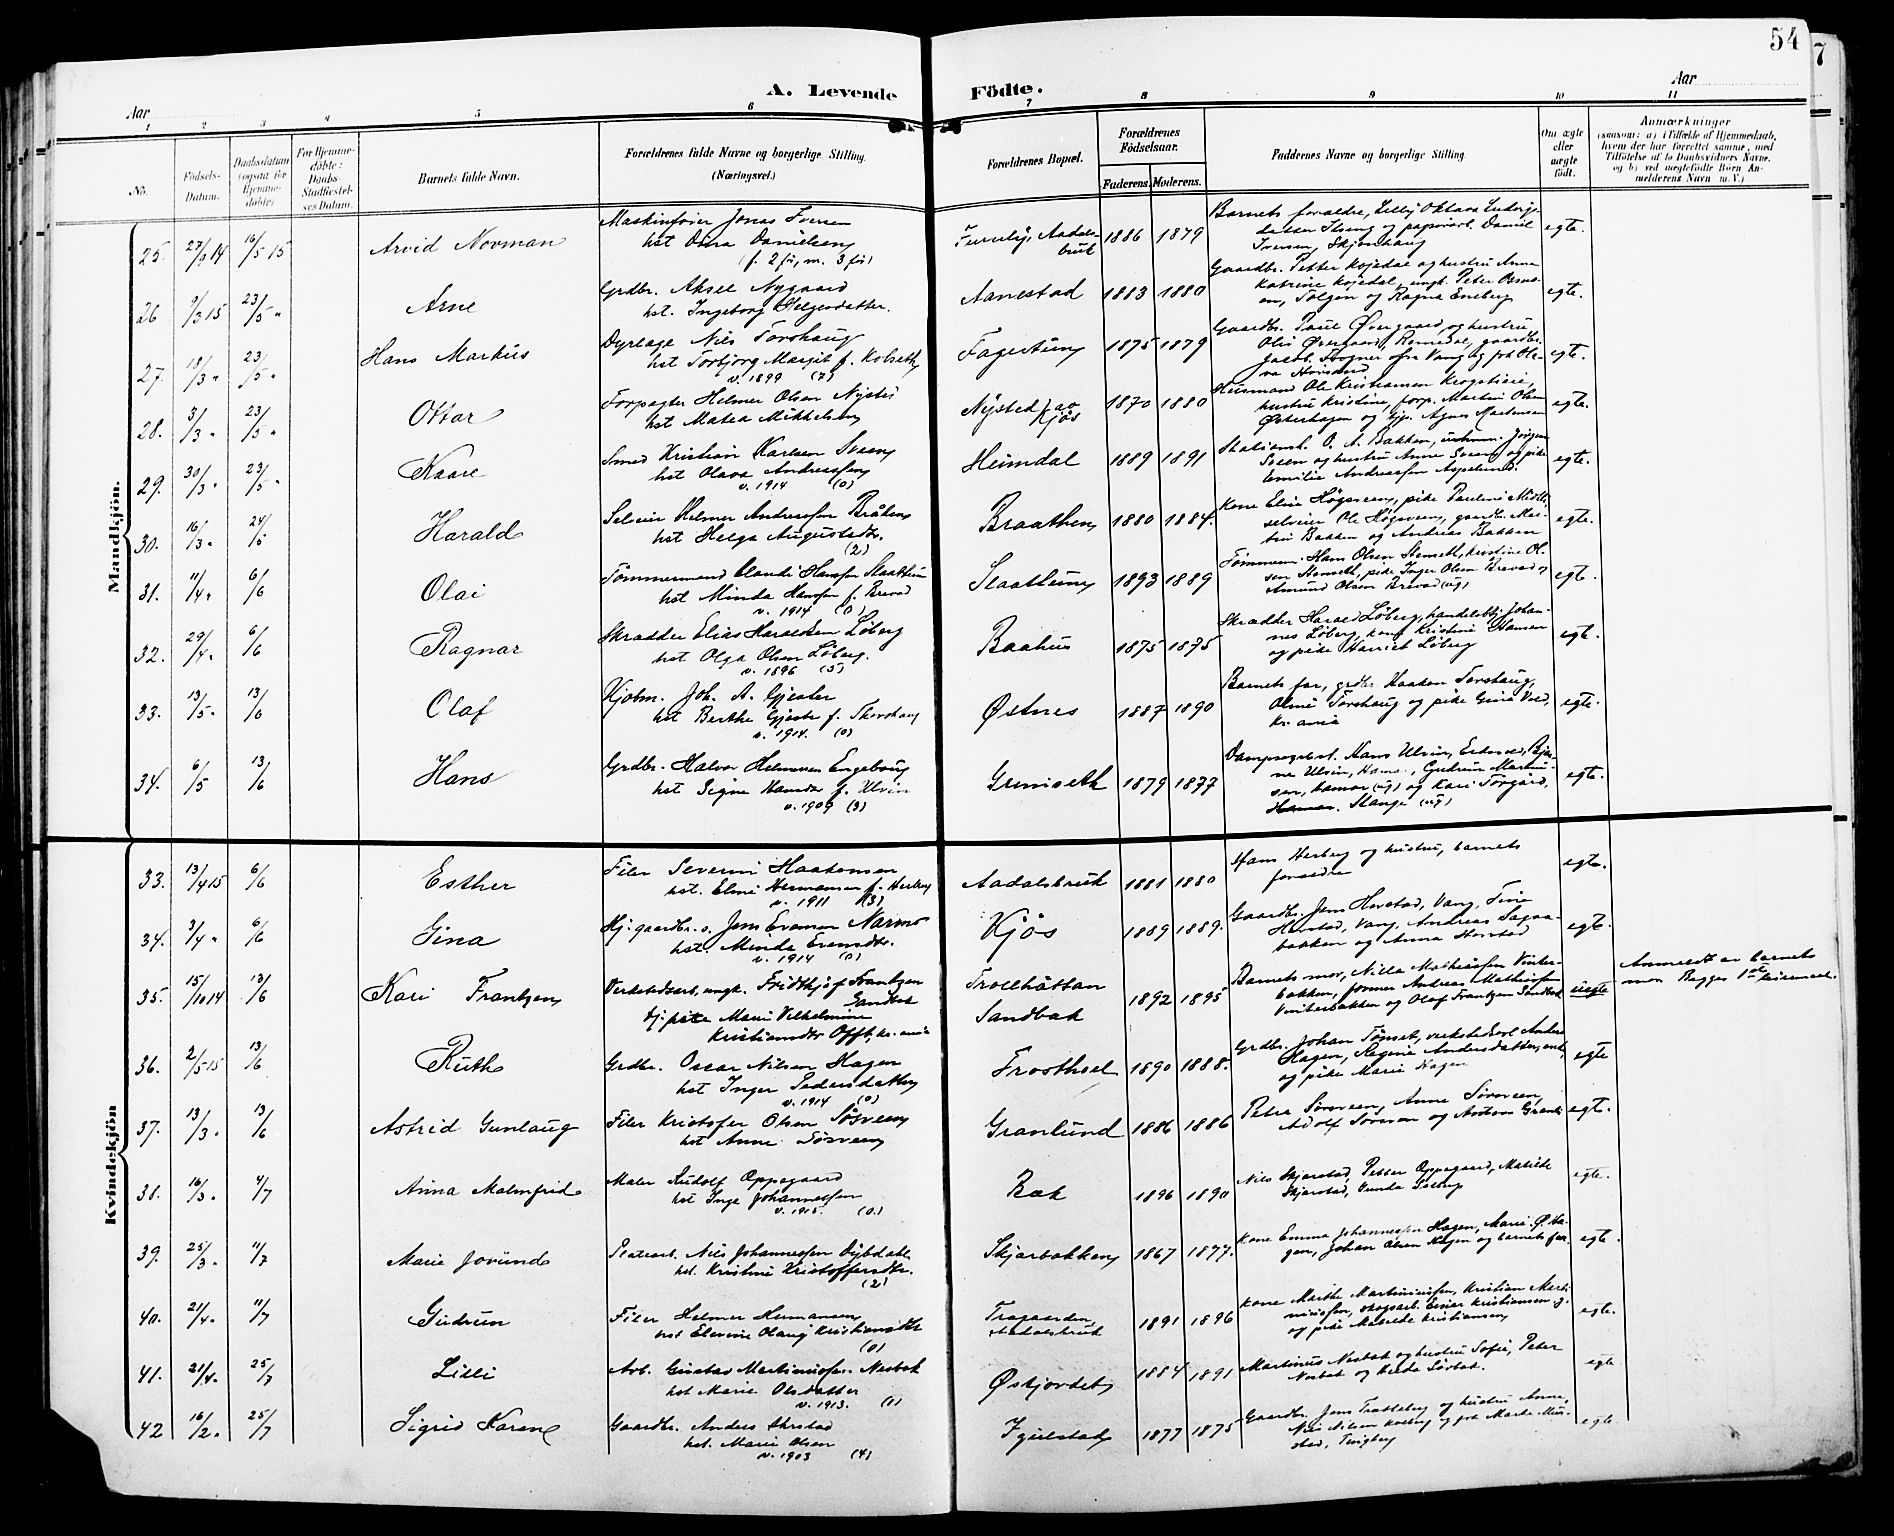 54
7
A. Levende Födte.
Aar
Aar
1 2 3 4 5 6 7 8 9 10 11
No.
Födsels-Datum.
Daabsdatum (ogsaa for Hjemmedöbte)
For Hjemmedöbte: Daabs-Stadfæstelses Datum.
Barnets fulde Navn.
Forældrenes fulde Navne og borgerlige Stilling. (Næringsvei.)
Forældrenes Bopæl.
Forældrenes Födselsaar.
Faderens. Moderens.
Faddernes Navne og borgerlige Stilling.
Om ægte eller uægte födt.
Anmærkninger
(saasom: a) i Tilfælde af Hjemmedaab,
hvem der har forrettet samme, med
Tilföielse af to Daabsvidners Navne,
og b) ved uægtefödte Börn An-
melderens Navn m. V.)
Mandkjön.
25. 27/9 14 16/5 15 Arvid Norman
Maskinfører Jonas Iversen
hst. Oma Danielsen
(f. 2 før, m. 3 før)
Furuly, Aadalsbruk 1886 1879
Barnets forældre, Lilly Oktava
og papirarb. Daniel
Iversen, Skjønhaug
egte.
26 9/3 15 23/5 " Arne
Grdbr. Aksel Nygaard
hst. Ingeborg Helgesdatter.
Aanestad 1883 1880
Gaardbr. Petter Kojedal og hustru Anna
Katrine Kojedal, ungk. Peter
Tolgen og Ragna Eneberg
egte.
27. 18/3 " 23/5 " Hans Markus
Dyrlæge Nils Torshaug
hst Torbjørg Margit f. Kolseth
v. 1899 (7)
Fagertun 1875 1879
Gaardbr. Paul Øvergaard, og hustru
Olis Øvergaard, Romedal, gaardbr.
Jacob Frogner fra Vang og frk Ole-
va
egte.
28. 3/3 " 23/5 " Ottar
Forpagter Helmer Olsen Nysted
hst Matea Mikkelsen
Nysted av Kjøs 1870 1880
Husmand Ole Kristiansen Krogstieie,
hustru Kristine, forp. Martin Olsen
Østerhagen og pige Agnes Martensen
egte.
29. 30/3 " 23/5 " Kaare
Smed Kristian Karlsen Sveen
hst Olava Andreassen
v. 1914 (0)
Heimdal 1889 1891
O. A. Bakken, Jørgen
Sveen og hustru Anne Sveen og pike
Emilie Andreassen
egte.
30. 16/3 " 24/5 Harald
Selveier Helmer Andreassen Bråten
hst Helga Augustsdtr.
(2)
Braathen 1880 1884.
Kone Elise Høgsveen, pike Pauline
selveier Ole Høgsveen, gaardbr.
Bakken og Andreas Bakken
egte.
31. 11/4 " 6/6 Olai
Tømmermand Hansen Slaattum
hst Minda Hansen f. Brevad
v. 1914 (0)
Slaattum 1893 1889
Tømmerm. Hans Olsen Stenseth, hustrue Ol-
sen Stenseth, pike Inger Olsen Brevad og
Amund Olsen Brevad (ug)
egte.
32. 29/4 " 6/6 Ragnar
Skrædder Elias Haraldsen Løberg
hst Olga Olsen Løberg.
v. 1896 (5)
Baahus 1875 1875
Skrædder Harald Løberg, handelsbtj. Johan-
nes Løberg, kone Kristine Hansen
og pike Harriet Løberg
egte.
33. 13/5 " 13/6 Olaf
Kjøbm. Joh. A. Gjester
hst Berthe Gjester f. Skorshaug
v. 1914. (0)
Østnes 1887 1890
Barnets far, grdbr. Haakon Torshaug,
Oline Torshaug og pike Gina Vold,
Kr.ania
egte.
34. 6/5 13/6 Hans
Grdbr. Halvor Helmersen Engebaug
hst Signe Hansdtr f. Ulvin
v. 1909 (3)
Grimseth 1879 1877
Dampsagbest. Hans Ulvin, Eidsvol,
Ulvin, Hamar, Gudrun Martin-
sen, Hamar (ug) og Kari Torgård,
Hamar. Stange (ug)
egte.
Kvindekjön
33. 13/4 15 6/6 Esther
Filer Severin Haakensen
hst. Eline Hermansen f. Herberg
v. 1911 (3)
Aadalsbruk 1881 1880
Hans Herberg og hustru, barnets
forældre
egte.
34. 3/4 " 6/6 Gina
Hj. gaardbr. s. Jens Evensen Narmo
hst. Minda Evensdtr.
v. 1914 (0)
Kjøs 1889 1889.
Gaardbr. Jens Horstad, Vang, Tine
Horstad, Vang, Andreas Sagaa-
bakken og Anna Horstad
egte.
35. 15/10 14 13/6 Kari Frantzen
Verkstedsarb., ungk. Fridthjof Frantzen
Sandbak
tj. pike Marie Vilhelmine
Kristiansdtr Offt, Kr.ania
Trollhättan
Sandbak 1892 1895
Barnets mor, Nilla Mathiesen Vinter-
bakken, former Andreas Mathiesen
Vinterbakken og Olaf Frantzen Sandbak
uegte
Anmeldt av barnets
mor Begges 1ste leiermaal.
36. 2/5 15 13/6 Ruth
Grdbr. Oscar Nilsen Hagen
hst Inger Pedersdatter
v. 1914 (0)
Frosthoel 1890 1888.
Grdbr. Johan Tømset, verkstedsarb Anders
Hagen, Regine Andersdatter, enke
og pike Marie Hagen
egte
37. 13/3 " 13/6 Astrid Gunlaug
Filer Kristofer Olsen Søsveen
hst Anne Søsveen
Granlund 1886 1886
Petra Sørsveen, Anne Sørsveen,
Adolf Sørsveen og Antone Granli
egte.
38. 16/3 " 4/7 Anna Malmfrid
Maler Rudolf Oppegaard
hst Inga Johannessen
v. 1915. (0.)
Bak 1896 1890
Nils Skjærstad, Petter Oppegaard, Matilde
Skjærstad, Gunda
egte.
39. 25/3 " 11/7 Marie Jorunds
Nils Johannessen Dybdahl
hst. Kristine Kristoffersdtr.
(2)
Skjærbakken 1867 1877.
Kone Emma Johannessen Hagen, Marie Ø. Ha-
gen, Johan Olsen Hagen og barnets far.
egte.
40. 21/4 " 11/7 Gudrun
Filer Helmer Hermansen
hst Elevine Olaug Kristiansdtr
(0)
Aadalsbruk 1891 1896
Kone Marthe Martiniussen, Kristian Marti-
niussen, skogsarb. Einar Kristiansen og
og pike Matilde Kristiansen
egte.
41. 21/4 " 25/7 Lilli
Arb. Gustav Martiniussen Nesbak
hst Marie Olsdatter
v. 1913. (1)
Øskjordet 1884 1891
Martinus Nesbak og hustru Sofie, Peter
Nesbak og Sørbak.
egte
42 16/2 " 25/7 Sigrid Karen
Gaardbr. Anders
hst. Marie Olsen
v. 1903 (4)
1877 1875
Gaardbr. Jens Tratteberg og hustru Anne,
Nils Nilsen Kolberg og frk Marte
stad, Tingberg
egte